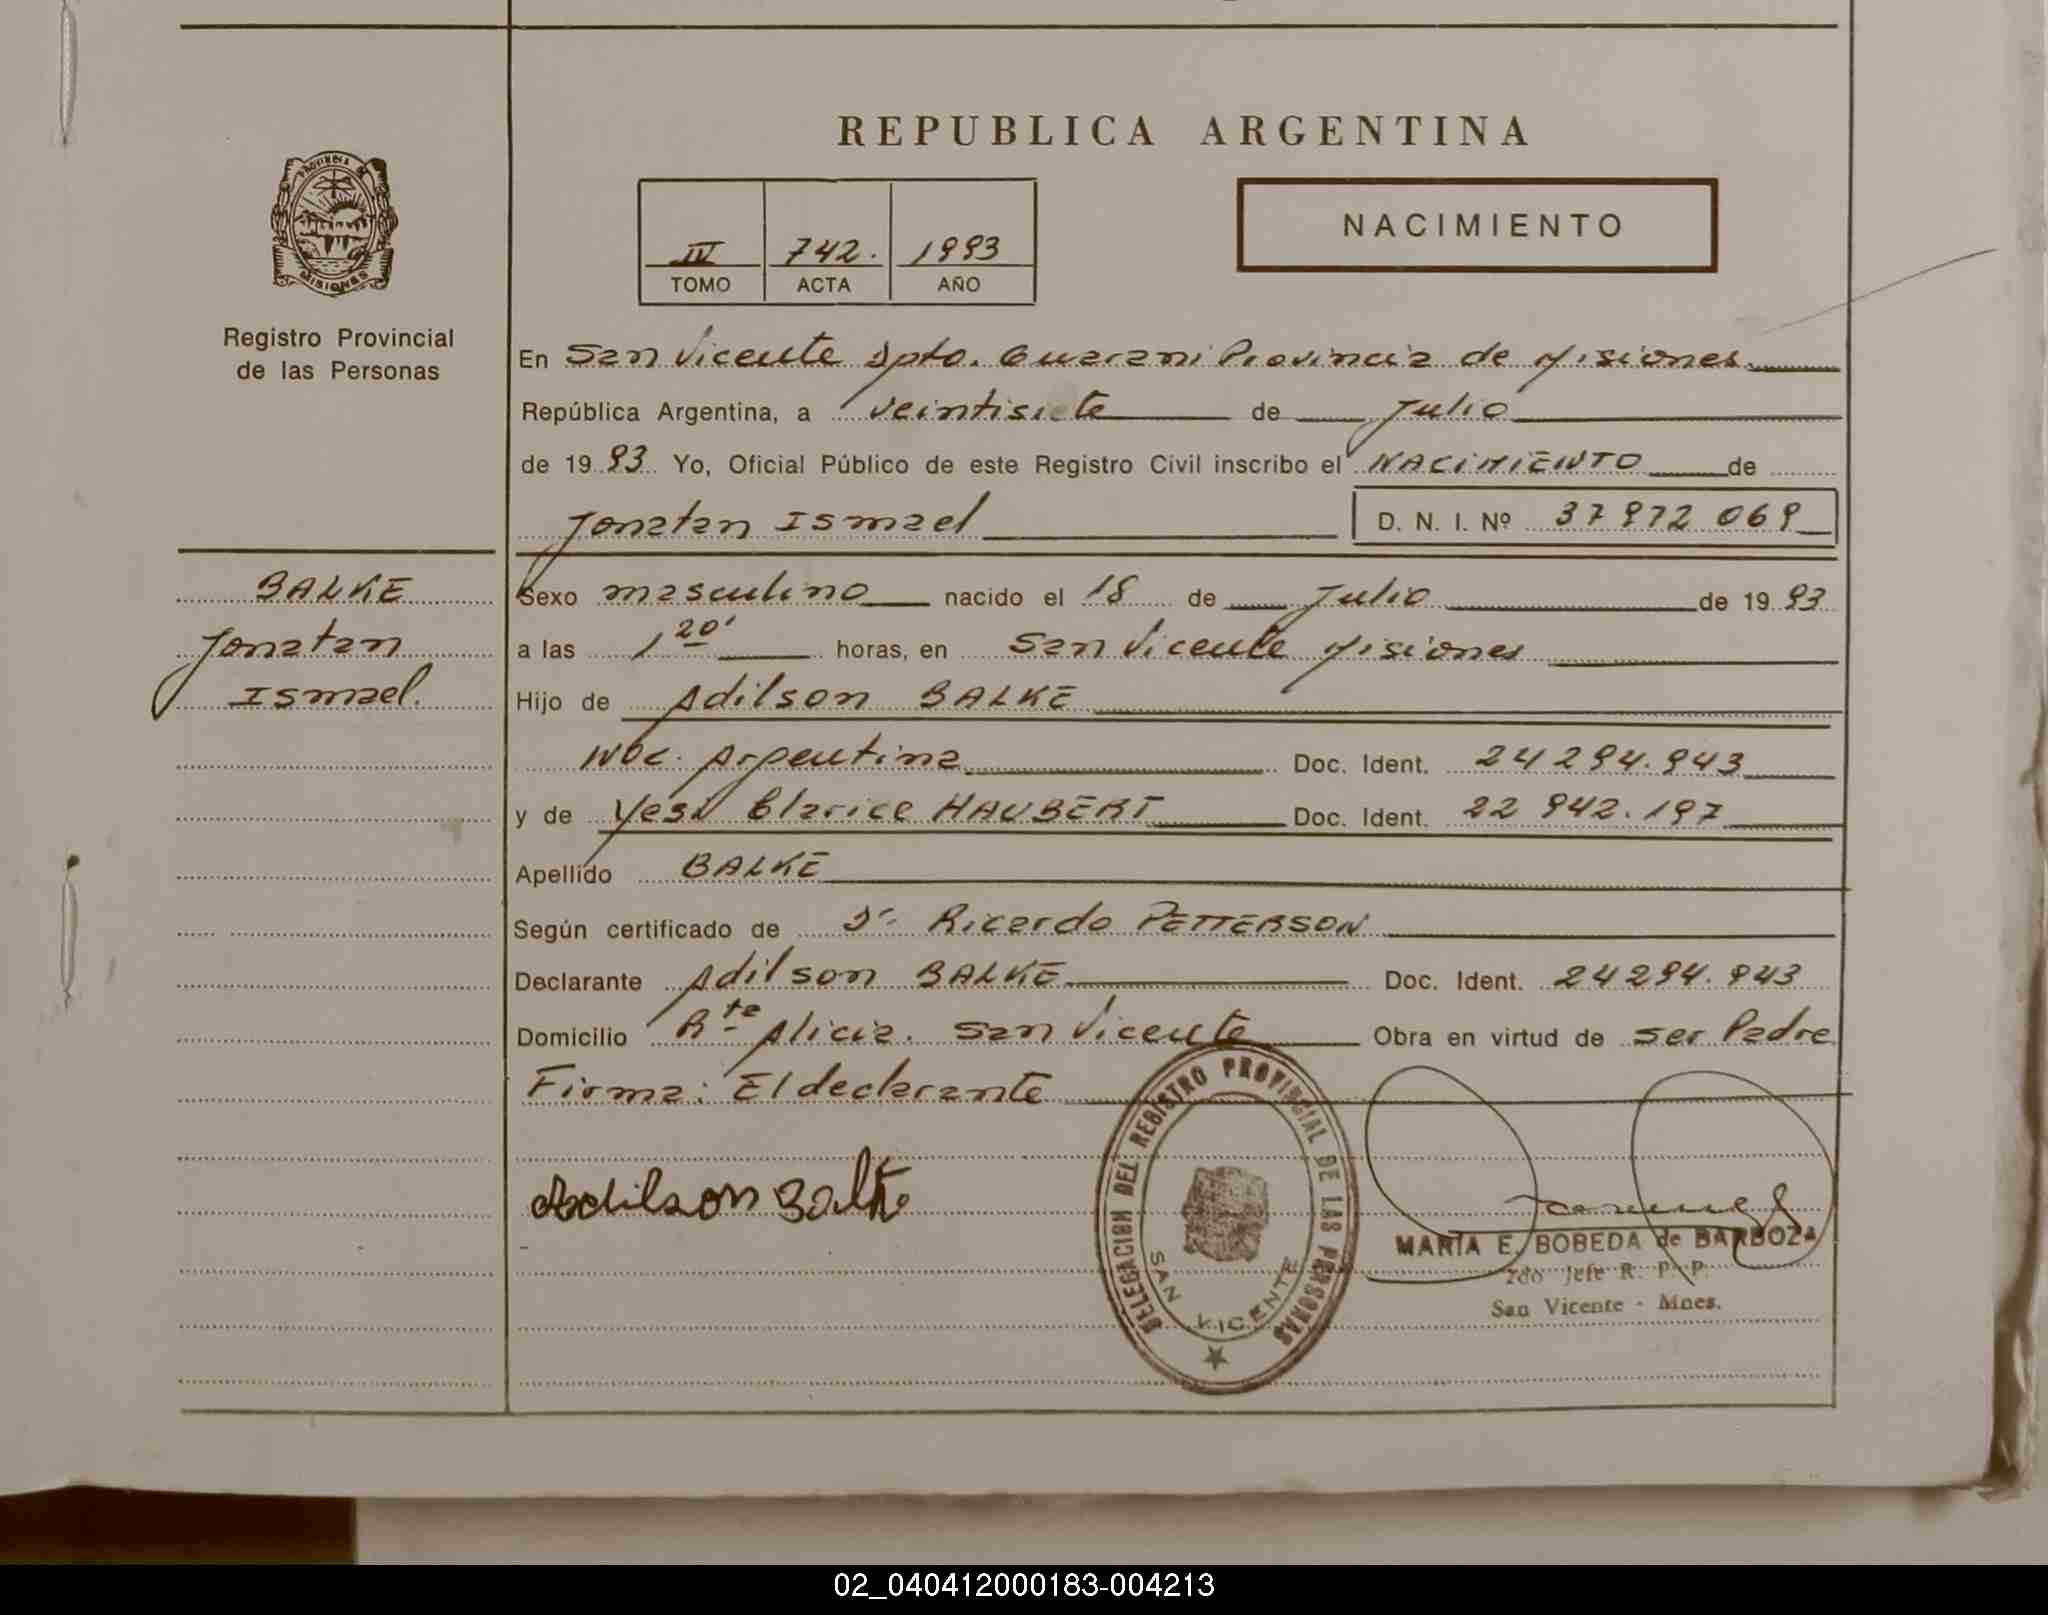 REPUBLICA ARGENTINA
PROVINCIA DE
MISIONES
Registro Provincial
de las Personas
IV 742. 1993
TOMO ACTA AÑO
NACIMIENTO
En San Vicente Dpto. Guarani Provincia de Misiones
República Argentina, a veintisiete de Julio
de 19 93 Yo, Oficial Público de este Registro Civil inscribo el NACIMIENTO de
Jonatan Ismael D. N. I. Nº 37 972 069
BALKE
Jonatan
Ismael.
Sexo masculino nacido el 18 de Julio de 19 93
a las 1 20' horas, en San Vicente Misiones
Hijo de Adilson BALKE
Nac. Argentina Doc. Ident. 24 294.943
y de Yesi Clarice HAUBERT Doc. Ident. 22 942.197
Apellido BALKE
Según certificado de Dr. Ricardo PETTERSON
Declarante Adilson BALKE Doc. Ident. 24 294.943
Domicilio Rte Alicia. San Vicente Obra en virtud de ser Padre
Firma: El declarante
Adilson Balke
DELEGACION DEL REGISTRO PROVINCIAL DE LAS PERSONAS
SAN VICENTE
MARIA E. BOBEDA de BARBOZA
2do Jefe R. P. P.
San Vicente - Mnes.
02_040412000183-004213